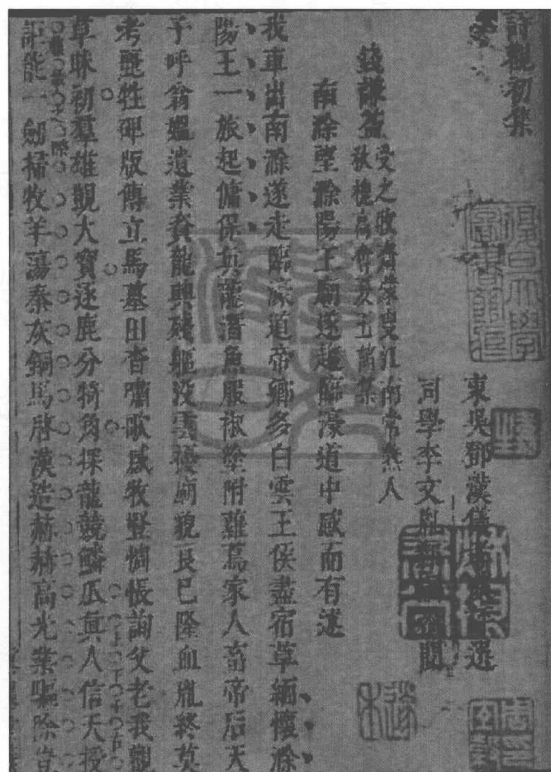 詩觀初集
東吳鄧漢儀 選
同學李文胤 閱
錢謙益 受之牧齋蒙叟江南常熟人
秋槐高會及五 集
南滁望滁陽王廟遂趨臨濠道中感而有述
我車出南滁遂走臨濠道帝鄉多白雲王侯盡宿草緬懷滁
陽王一旅起傭保真龍潛魚服椒塗附雞為家人畜帝后天
子呼翁媼遺業資龍興殘軀沒雲 廟貌良已隆血胤終莫
考麗牲碑版傳立馬墓田杳嘯歌感牧豎惆悵詢父老我觀
草昧初羣雄覬大寶逐鹿分犄角探龍競鱗爪真人信天授
詎能一劍掃牧羊蕩秦灰銅馬啓漢造赫赫高光業驅除豈